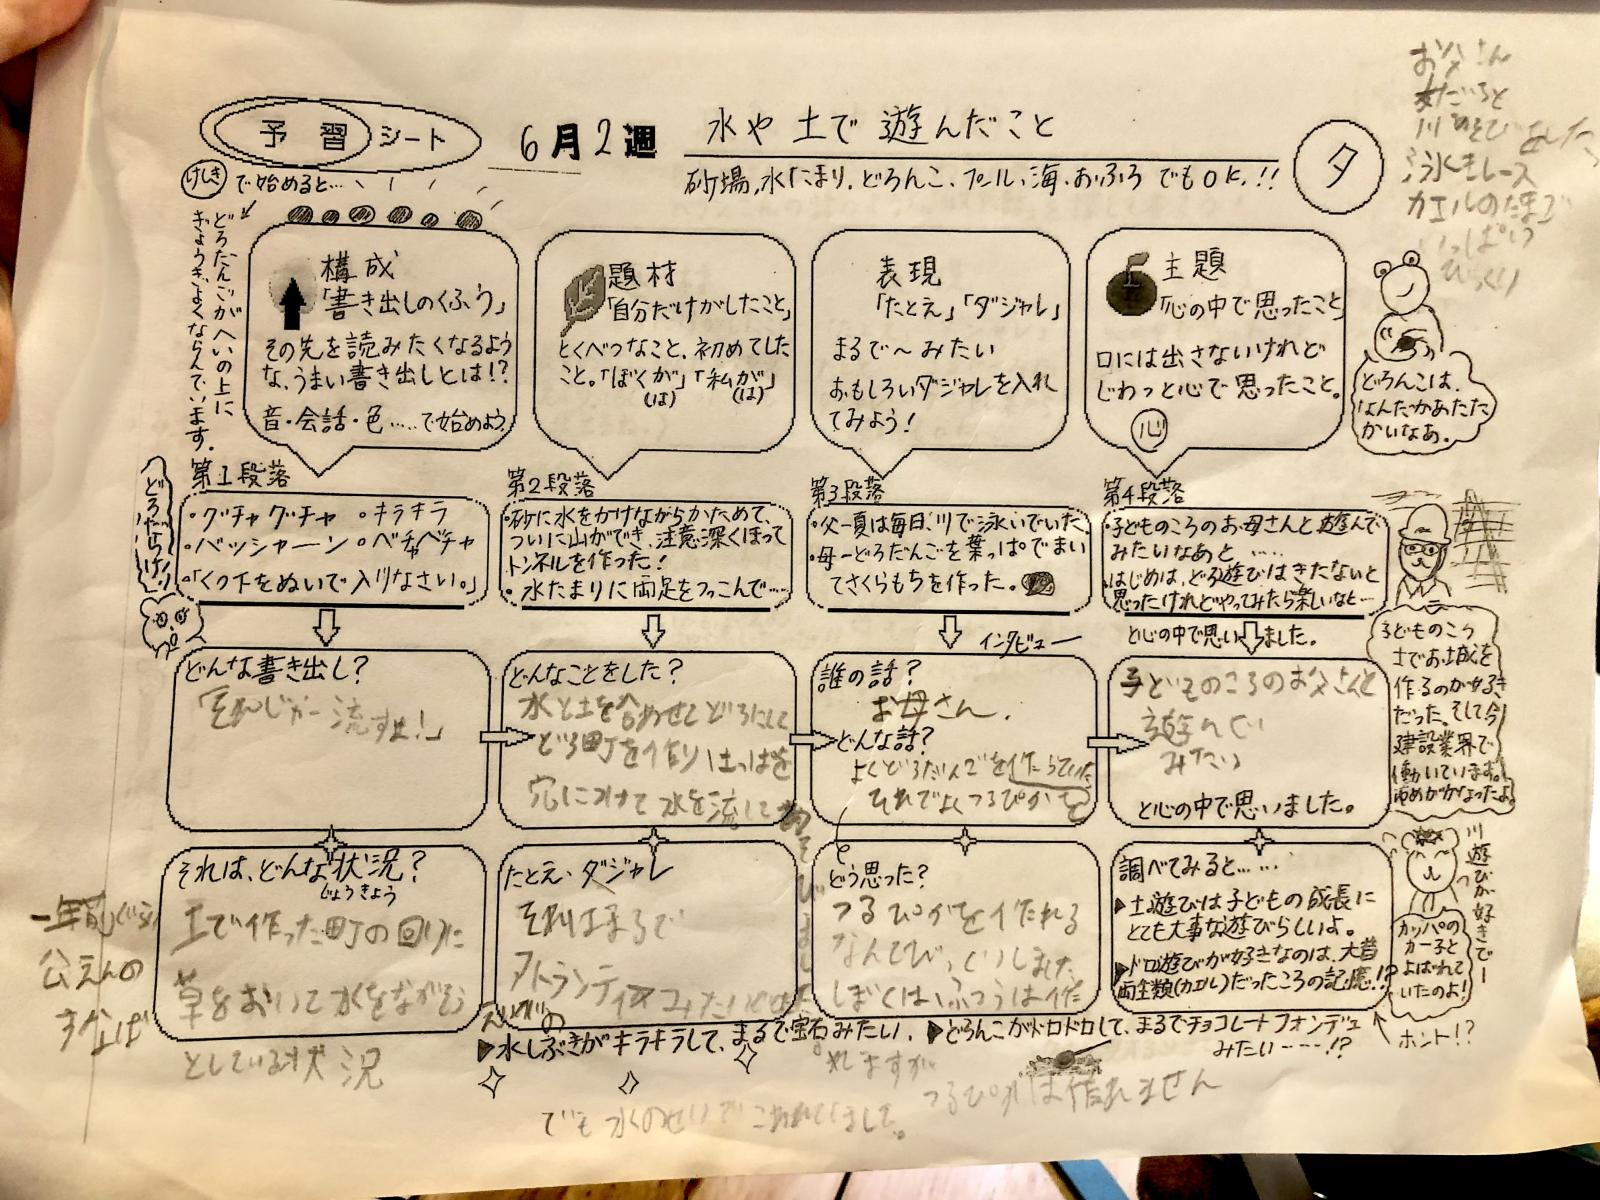 予習シート
6月2週
水や土で遊んだこと
砂場、水たまり、どろんこ、プール、海、おふろでもOK.!!
夕
お父さん
友だちと
川あそびをした
水泳レース
カエルのたまご
いっぱい
びっくり
けしきで始めると…
どろだんごがへいの上に
ぎょうぎよくならんでいます。
構成
「書き出しのくふう」
その先を読みたくなるよう
な、うまい書き出しとは!?
音・会話・色……で始めよう
題材
「自分だけがしたこと」
とくべつなこと、初めてした
こと。「ぼくが」「私が」
(は) (は)
表現
「たとえ」「ダジャレ」
まるで〜みたい
おもしろいダジャレを入れ
てみよう!
主題
「心の中で思ったこと」
口には出さないけれど
じわっと心で思ったこと。
心
どろんこは、
なんだかあたた
かいなあ。
第1段落
・グチャグチャ ・キラキラ
・バッシャーン ・ベチャベチャ
・「くつ下をぬいで入りなさい。」
第2段落
・砂に水をかけながらかためて、
ついに山ができ、注意深くほって
トンネルを作った!
・水たまりに両足をつっこんで…
第3段落
・父一夏は毎日、川で泳いでいた。
・母一どろだんごを葉っぱでまい
てさくらもちを作った。
第4段落
・子どものころのお母さんと遊んで
みたいなあと……
・はじめは、どろ遊びはきたないと
思ったけれどやってみたら楽しいなと…
と心の中で思いました。
インタビュー
どんな書き出し?
「それじゃー流すよ!」
どんなことをした?
水と土を合わせてどろにして
どろ町を作りはっぱを
穴につけて水を流して
あそびました
誰の話?
お母さん。
どんな話?
よくどろだんごを作っていた
それでよくつるぴかを
子どものころのお父さんと
遊んで
みたい
と心の中で思いました。
子どものころ
土でお城を
作るのが好き
だった。そして今
建設業界で
働いています。
ゆめがかなったよ。
それは、どんな状況?
じょうきょう
土で作った町の回りに
草をおいて水をながそう
としている状況
一年前ぐらい
公えんの
すなば
たとえ・ダジャレ
それはまるで
アトランティスみたい
えいがの
でも水のせいでこわれてしまして。
どう思った?
つるぴかを作れる
なんてびっくりしました
ぼくはふつうは作
れますが
つるぴかは作れません
調べてみると……
▶土遊びは子どもの成長に
とても大事な遊びらしいよ。
▶ドロ遊びが好きなのは、大昔
両生類(カエル)だったころの記憶!?
ホント!?
川遊びが好きでー
カッパの
カー子と
よばれて
いたのよ!
▶水しぶきがキラキラして、まるで宝石みたい。
▶どろんこがドロドロして、まるでチョコレートフォンデュ
みたい……!?